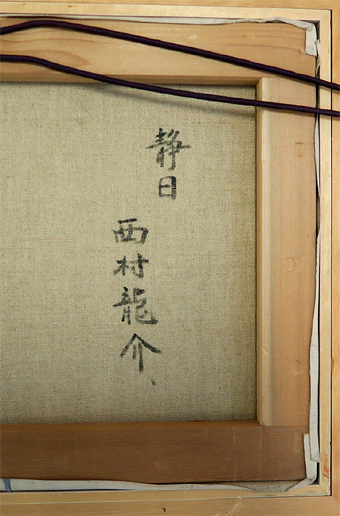 静日
西村龍介